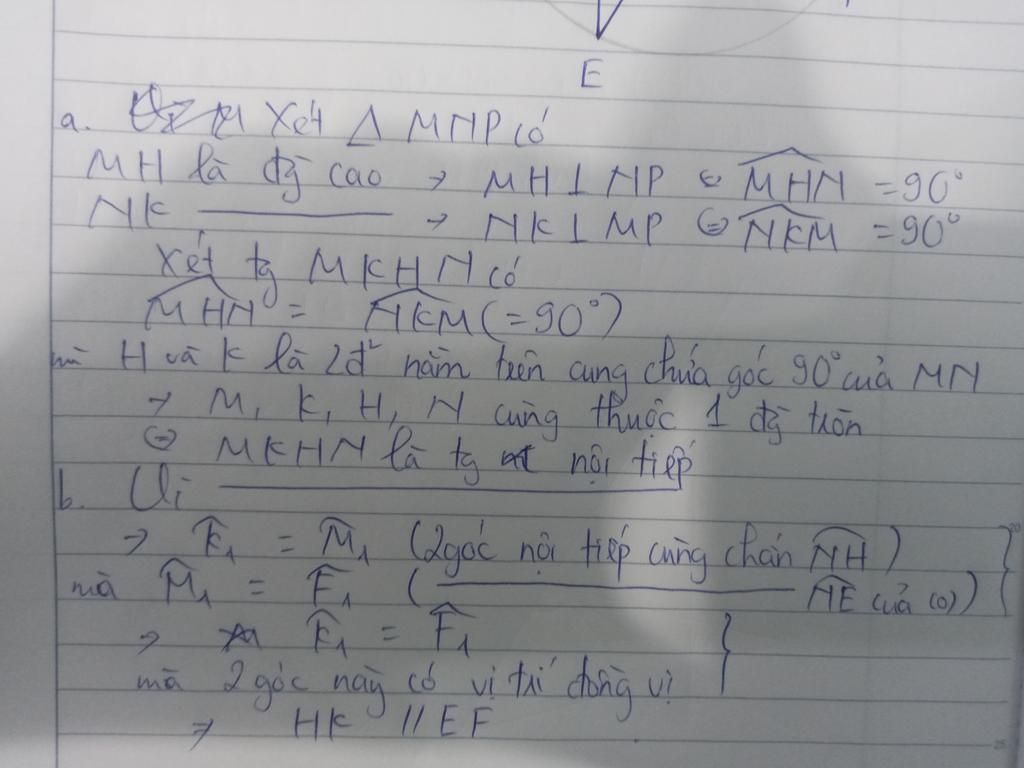 E
a. Xét Δ MNP có
MH là đg cao → MH ⊥ NP ⇔ MHN = 90°
NK ——— → NK ⊥ MP ⇔ NKM = 90°
Xét tg MKHN có
MHN = NKM (= 90°)
mà H và K là 2 đ² nằm trên cung chứa góc 90° của MN
→ M, K, H, N cùng thuộc 1 đg tròn
⇔ MKHN là tg nội tiếp
b. Vì ———
→ K̂₁ = M̂₁ (2 góc nội tiếp cùng chắn NH)
mà M̂₁ = F̂₁ ( ——— NE của (O))
→ K̂₁ = F̂₁
mà 2 góc này có vị trí đồng vị
⇒ HK // EF